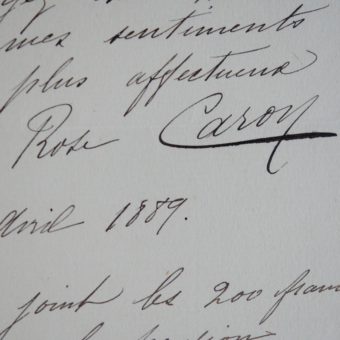 mes sentiments
plus affectueux
Rose Caron
Avril 1889.
joint les 200 fran